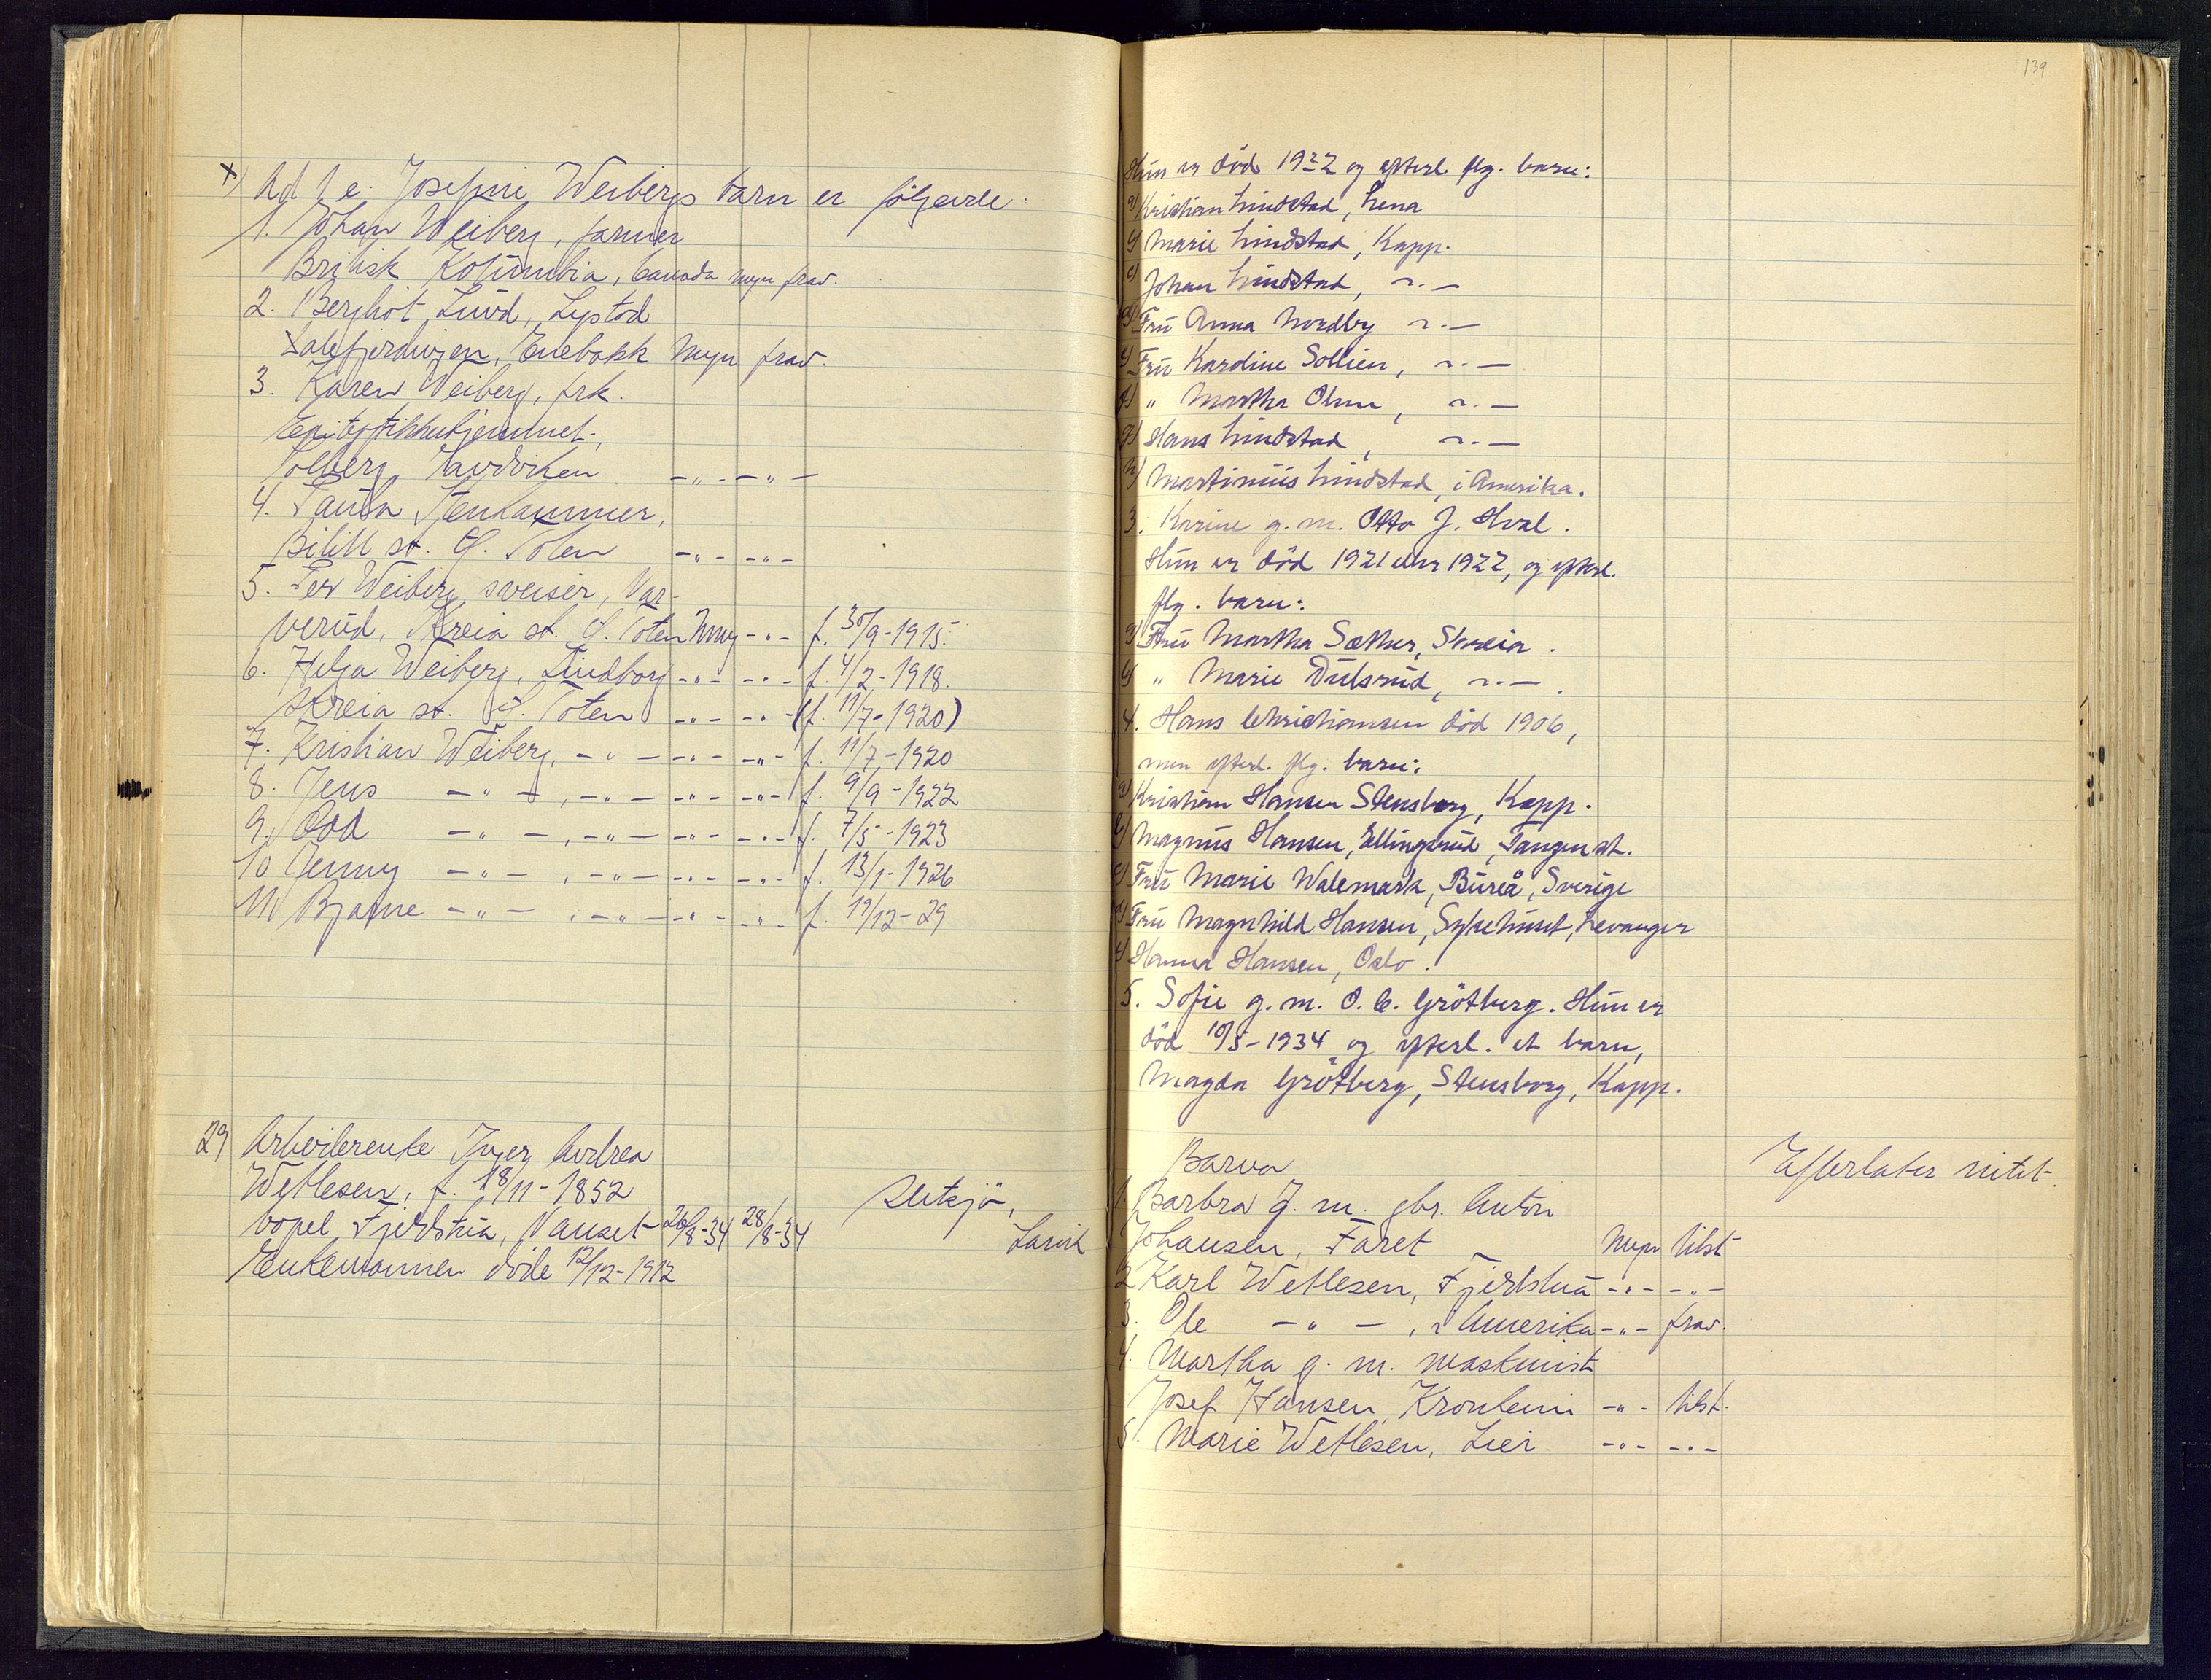 x) Ad 1 e. Josefine Weibergs barn er følgende:
1. Johan Weiberg, farmer
Britisk Kolumbia, Canada myn frav.
2. Bergliot Lund, Lystad
Dalefjerdingen, Enebakk Myn frav.
3. Karen Weiberg, frk.
Epileptikkerhjemmet,
Solberg, Sandviken -"- -"-
4. Paula Stenhammer,
Bilitt st. Ø. Toten -"- -"-
5. Per Weiberg, sveiser, Var-
verud, Kreia st. Ø. Toten Umy -"- f. 30/9-1915.
6. Helga Weiberg, Lindborg -"- -"- f. 4/2-1918.
Skreia st. Ø. Toten -"- -"- (f. 11/7-1920)
7. Kristian Weiberg, -"- -"- -"- f. 11/7-1920
8. Jens -"-, -"- -"- -"- f. 9/9-1922
9. Odd -"-, -"- -"- -"- f. 7/5-1923
10 Jenny -"-, -"- -"- -"- f. 13/1-1926
11. Bjarne -"-, -"- -"- -"- f. 19/12-29
29 Arbeiderenke Inger Andrea
Wetlesen, f. 18/11-1852
bopel Fjeldstua, Nanset 26/8-34 28/8-34 Slitsjö,
Larvik
Enkemannen døde 12/12-1912
139
Hun er død 1922 og efterl. flg. barn:
a) Kristian Lindstad, Lena
b) Marie Lindstad, Kapp.
c) Johan Lindstad, -"-
d) Fru Anna Nordby -"-
e) Fru Kardine Sollien, -"-
f) " Martha Olsen, -"-
g) Hans Lindstad, -"-
h) Martinius Lindstad, i Amerika.
3. Karine g. m. Otto J. Hval.
Hun er død 1921 eller 1922, og efterl.
flg. barn:
a) Fru Martha Sæther, Skreia.
b) " Marie Dulsrud, -"-.
4. Hans Christiansen død 1906,
men efterl. flg. barn:
a) Kristian Hansen Stensborg, Kapp.
b) Magnus Hansen, Ellingsrud, Tangen st.
c) Fru Marie Walemark, Bureå, Sverige
d) Fru Magnhild Hansen, Sykehuset, Levanger
e) Hanna Hansen, Oslo.
5. Sofie g. m. O. C. Grøtberg. Hun er
død 10/5-1934 og efterl. et barn,
Magda Grøtberg, Stensborg, Kapp.
Barna Efterlater intet.
1. Barbra g. m. gbr. Anton
Johansen, Faret Myn tilst
2 Karl Wetlesen, Fjeldstua -"- -"-
3. Ole -"-, i Amerika -"- frav.
4. Martha g. m. maskinist
Josef Hansen, Kronheim -"- tilst.
5. Marie Wetlesen, Lier -"- -"-